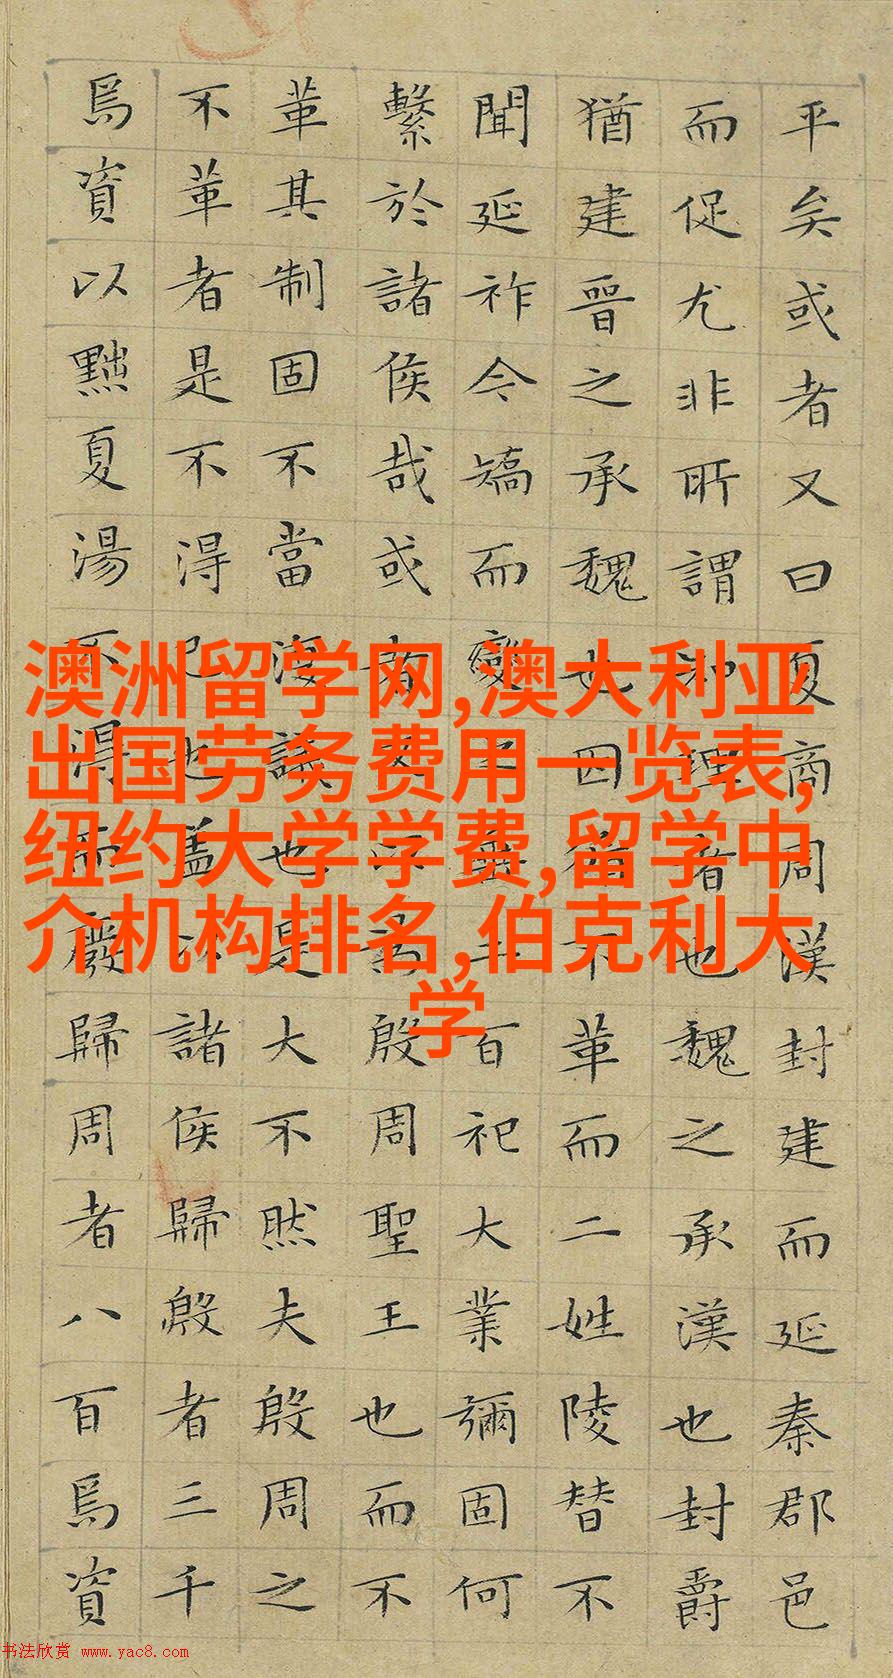 平矣或者又曰夏商周漢封建而延秦郡邑
而促尤非所謂知理者也魏之承漢也封爵
猶建晉之承魏也因循不革而二姓陵替不
聞延祚今矯而變之垂二百祀大業彌固何
繫於諸侯哉或者又以為殷周聖王也而不
革其制固不當復議也是大不然夫殷周之
不革者是不得已也蓋以諸侯歸殷者三千
焉資以黜夏湯不得而廢歸周者八百焉資
澳洲留学网,澳大利亚
出国劳务费用一览表,
纽约大学学费,留学中
介机构排名,伯克利大
学
书法欣赏 www.yac8.com